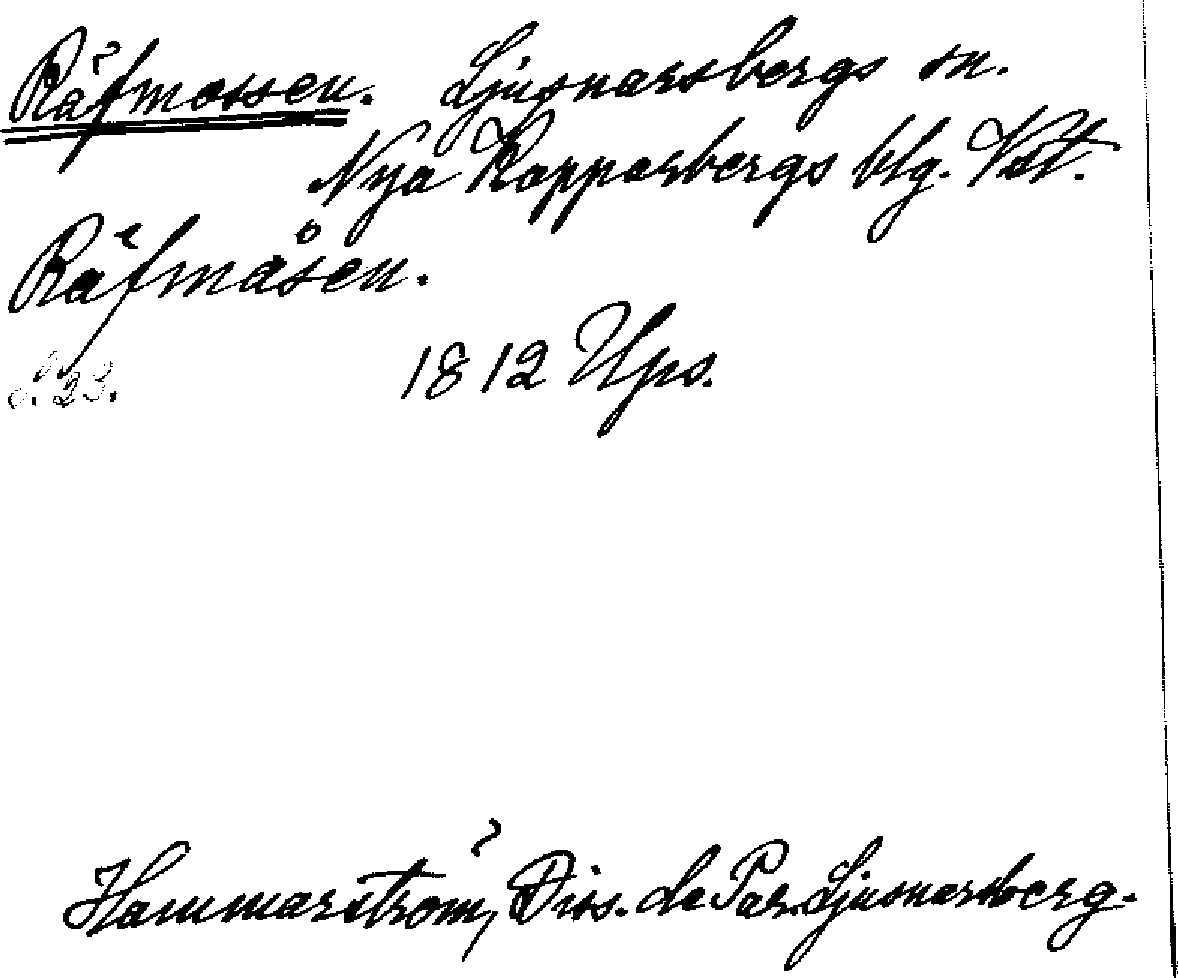 Räfmossen. Ljusnarsbergs sn.
Nya Kopparbergs blg. Vstl.
Räfmåsen.
S. 23. 1812 Ups.
Hammarström, Diss. de Par. Ljusnarsberg.